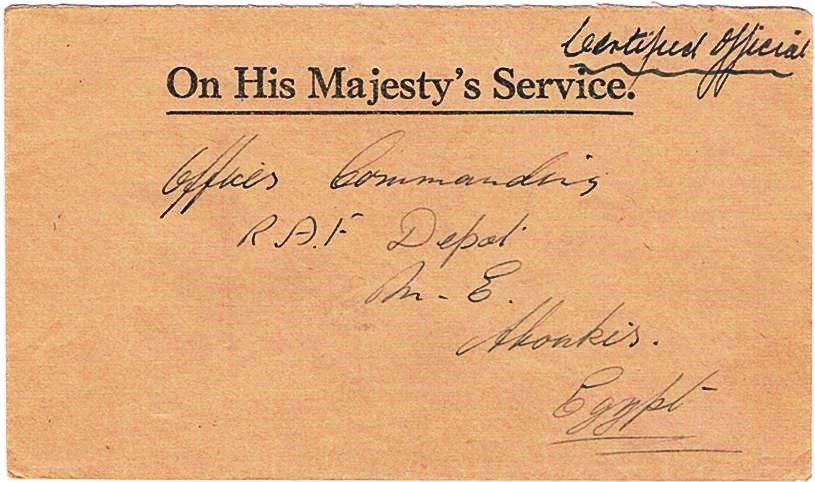 Certified Official
On His Majesty's Service.
Officer Commanding
R.A.F Depot
M-E.
Aboukir.
Egypt